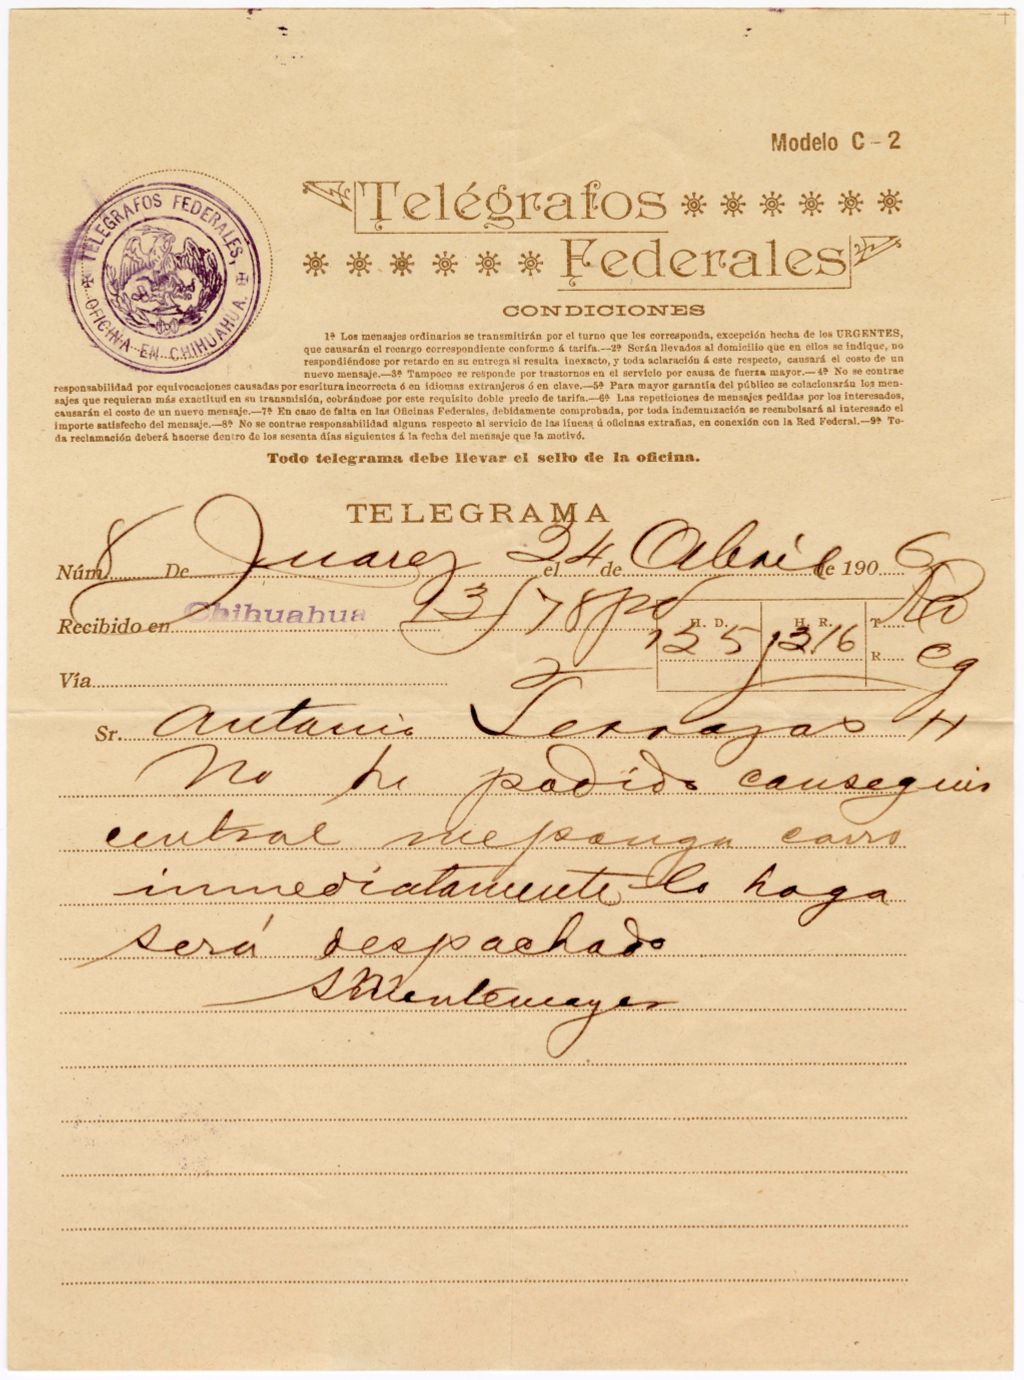 Modelo C-2
TELEGRAFOS FEDERALES,
OFICINA EN CHIHUAHUA.
Telégrafos
Federales
CONDICIONES
1ª Los mensajes ordinarios se transmitirán por el turno que les corresponda, excepción hecha de los URGENTES,
que causarán el recargo correspondiente conforme á tarifa.—2ª Serán llevados al domicilio que en ellos se indique, no
respondiéndose por retardo en su entrega si resulta inexacto, y toda aclaración á este respecto, causará el costo de un
nuevo mensaje.—3ª Tampoco se responde por trastornos en el servicio por causa de fuerza mayor.—4ª No se contrae
responsabilidad por equivocaciones causadas por escritura incorrecta ó en idiomas extranjeros ó en clave.—5ª Para mayor garantía del público se colacionarán los men-
sajes que requieran más exactitud en su transmisión, cobrándose por este requisito doble precio de tarifa.—6ª Las repeticiones de mensajes pedidas por los interesados,
causarán el costo de un nuevo mensaje.—7ª En caso de falta en las Oficinas Federales, debidamente comprobada, por toda indemnización se reembolsará al interesado el
importe satisfecho del mensaje.—8ª No se contrae responsabilidad alguna respecto al servicio de las líneas ú oficinas extrañas, en conexión con la Red Federal.—9ª To-
da reclamación deberá hacerse dentro de los sesenta días siguientes á la fecha del mensaje que la motivó.
Todo telegrama debe llevar el sello de la oficina.
TELEGRAMA
Núm. 8 De Juarez el 24 de Abril de 1906
Recibido en Chihuahua 13/78 H. D. 125 H. R. 1316 T. R.
Vía
Sr. Antonio Terrazas H
No he podido conseguir
central me ponga carro
inmediatamente lo haga
será despachado
S Montemayor